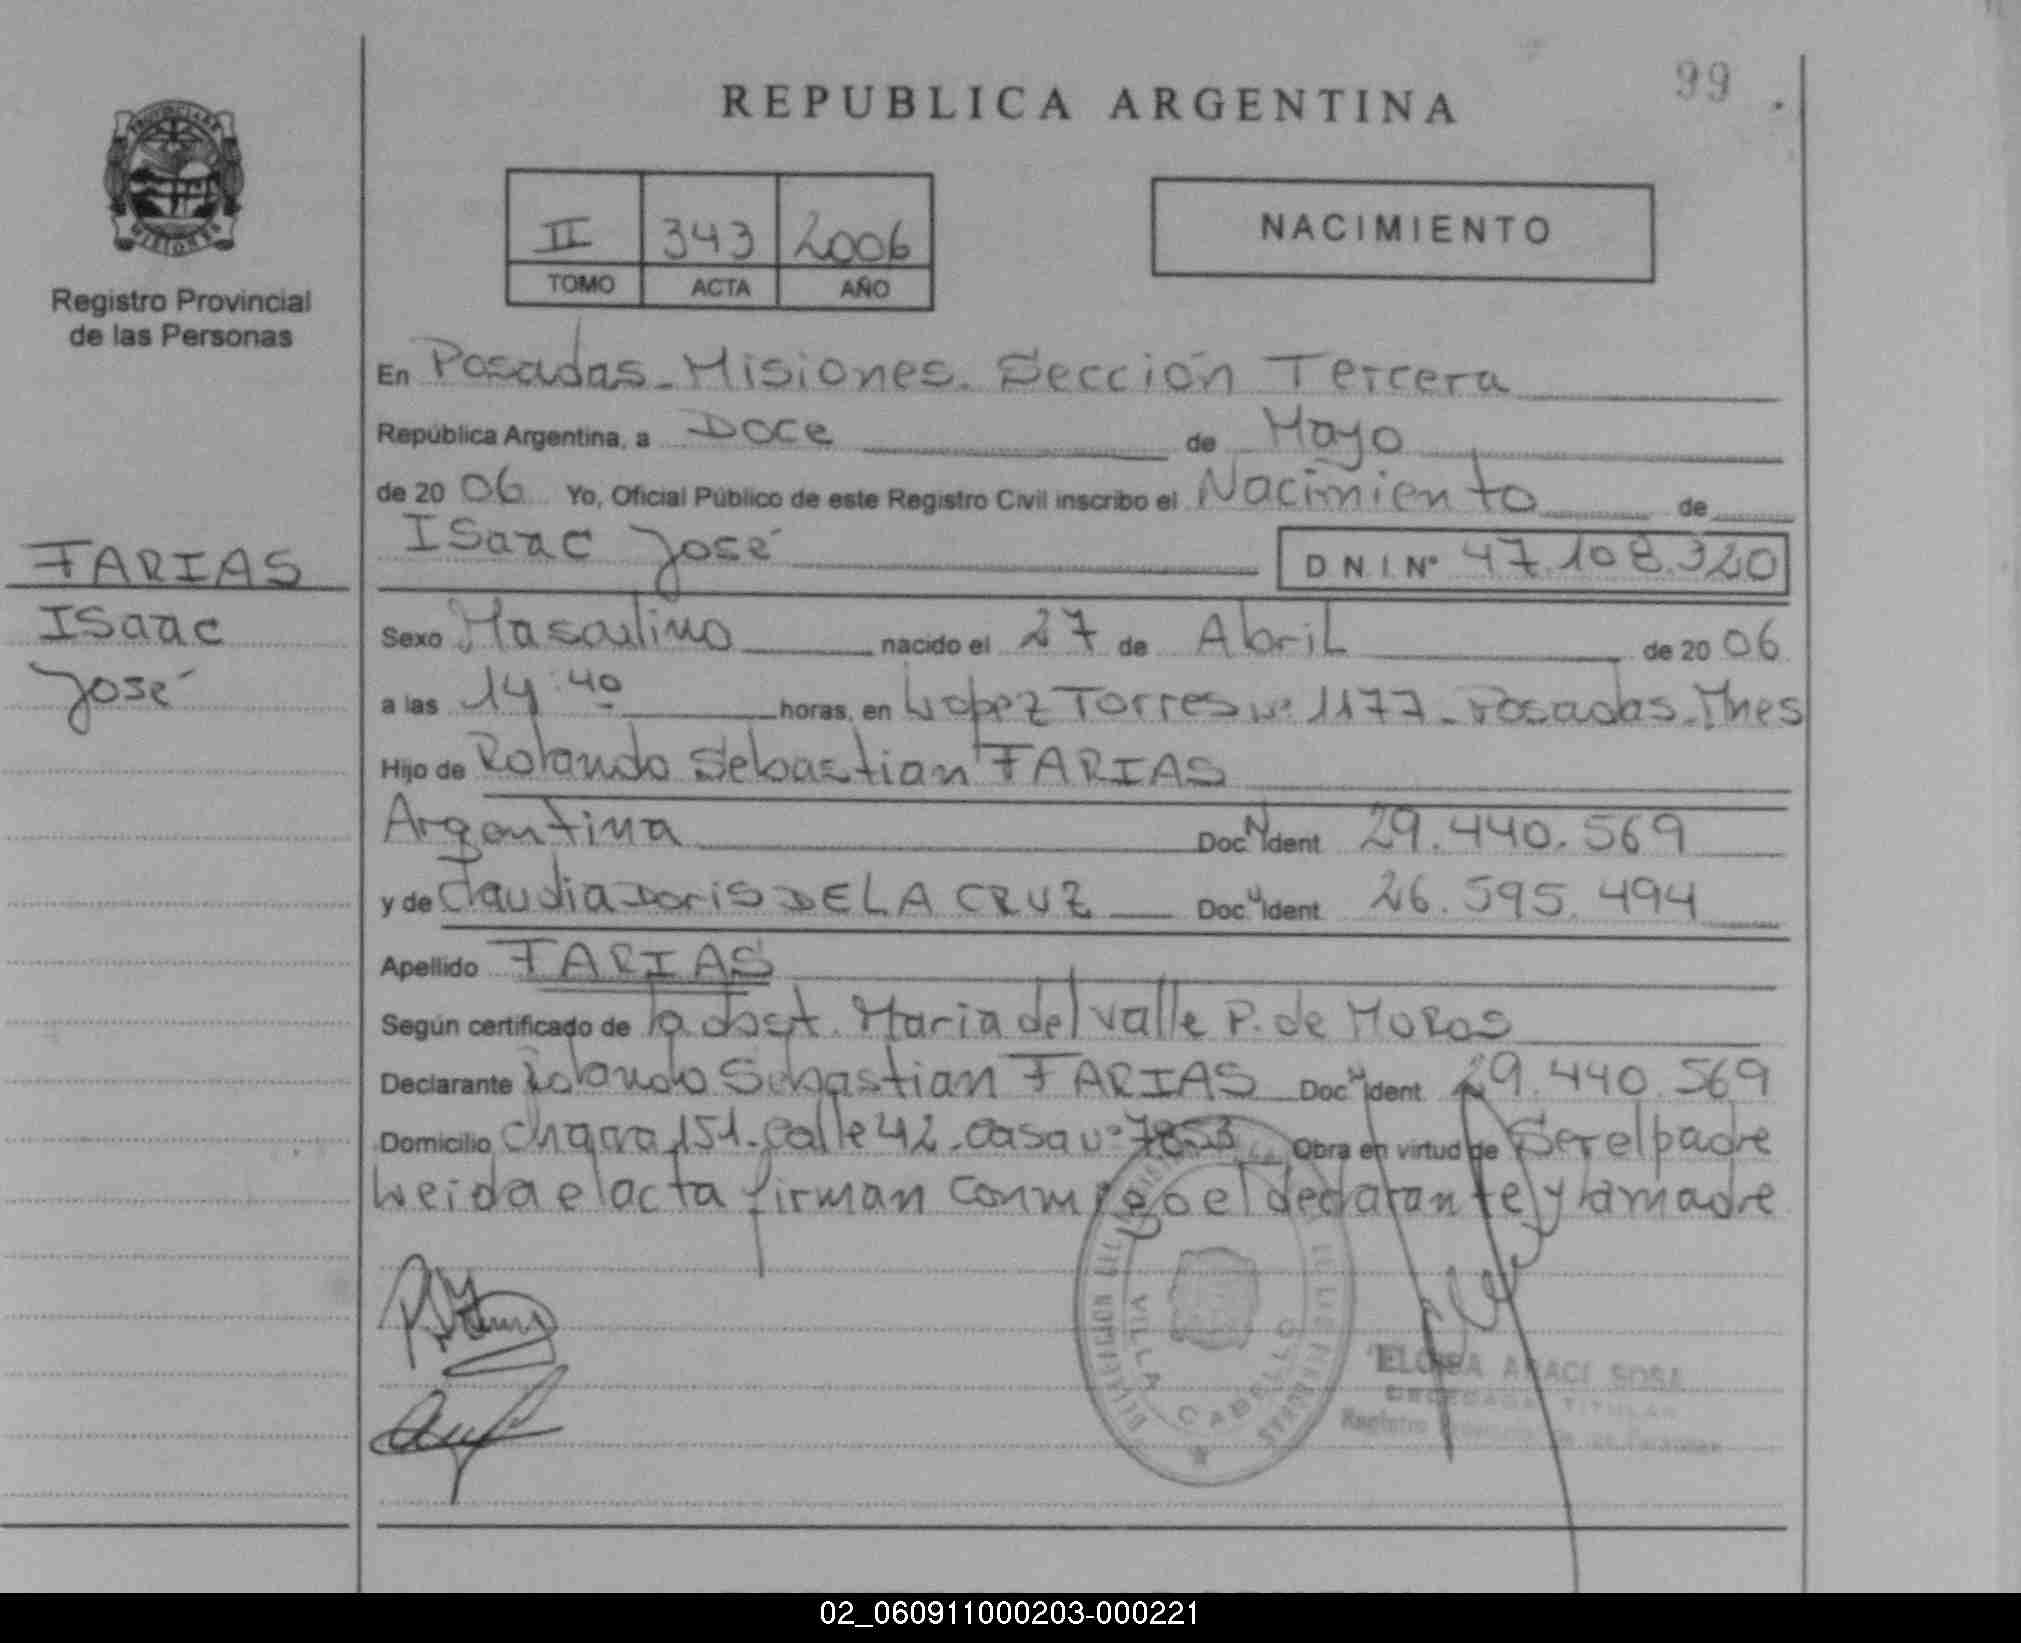 99
REPUBLICA ARGENTINA
PROVINCIA DE
MISIONES
Registro Provincial
de las Personas
II 343 2006
TOMO ACTA AÑO
NACIMIENTO
En Posadas - Misiones. Sección Tercera
República Argentina, a Doce de Mayo
de 20 06 Yo, Oficial Público de este Registro Civil inscribo el Nacimiento de
Isaac José D N I. Nº 47.108.320
FARIAS
Isaac
José
Sexo Masculino nacido el 27 de Abril de 20 06
a las 14:40 horas, en Lopez Torres Nº 1177 - Posadas - Mnes
Hijo de Rolando Sebastian FARIAS
Argentina Doc N Ident 29.440.569
y de Claudia Doris DE LA CRUZ Doc N Ident 26.595.494
Apellido FARIAS
Según certificado de la obst. Maria del Valle P. de MOROS
Declarante Rolando Sebastian FARIAS Doc N Ident 29.440.569
Domicilio Chacra 151 - Calle 42 - Casa Nº 7853 Obra en virtud de Ser el padre
Leida el acta firman conmigo el declarante y la madre
VILLA CABELLO
ELOISA ARACI SOSA
DELEGADA TITULAR
Registro Provincial de las Personas
02_060911000203-000221